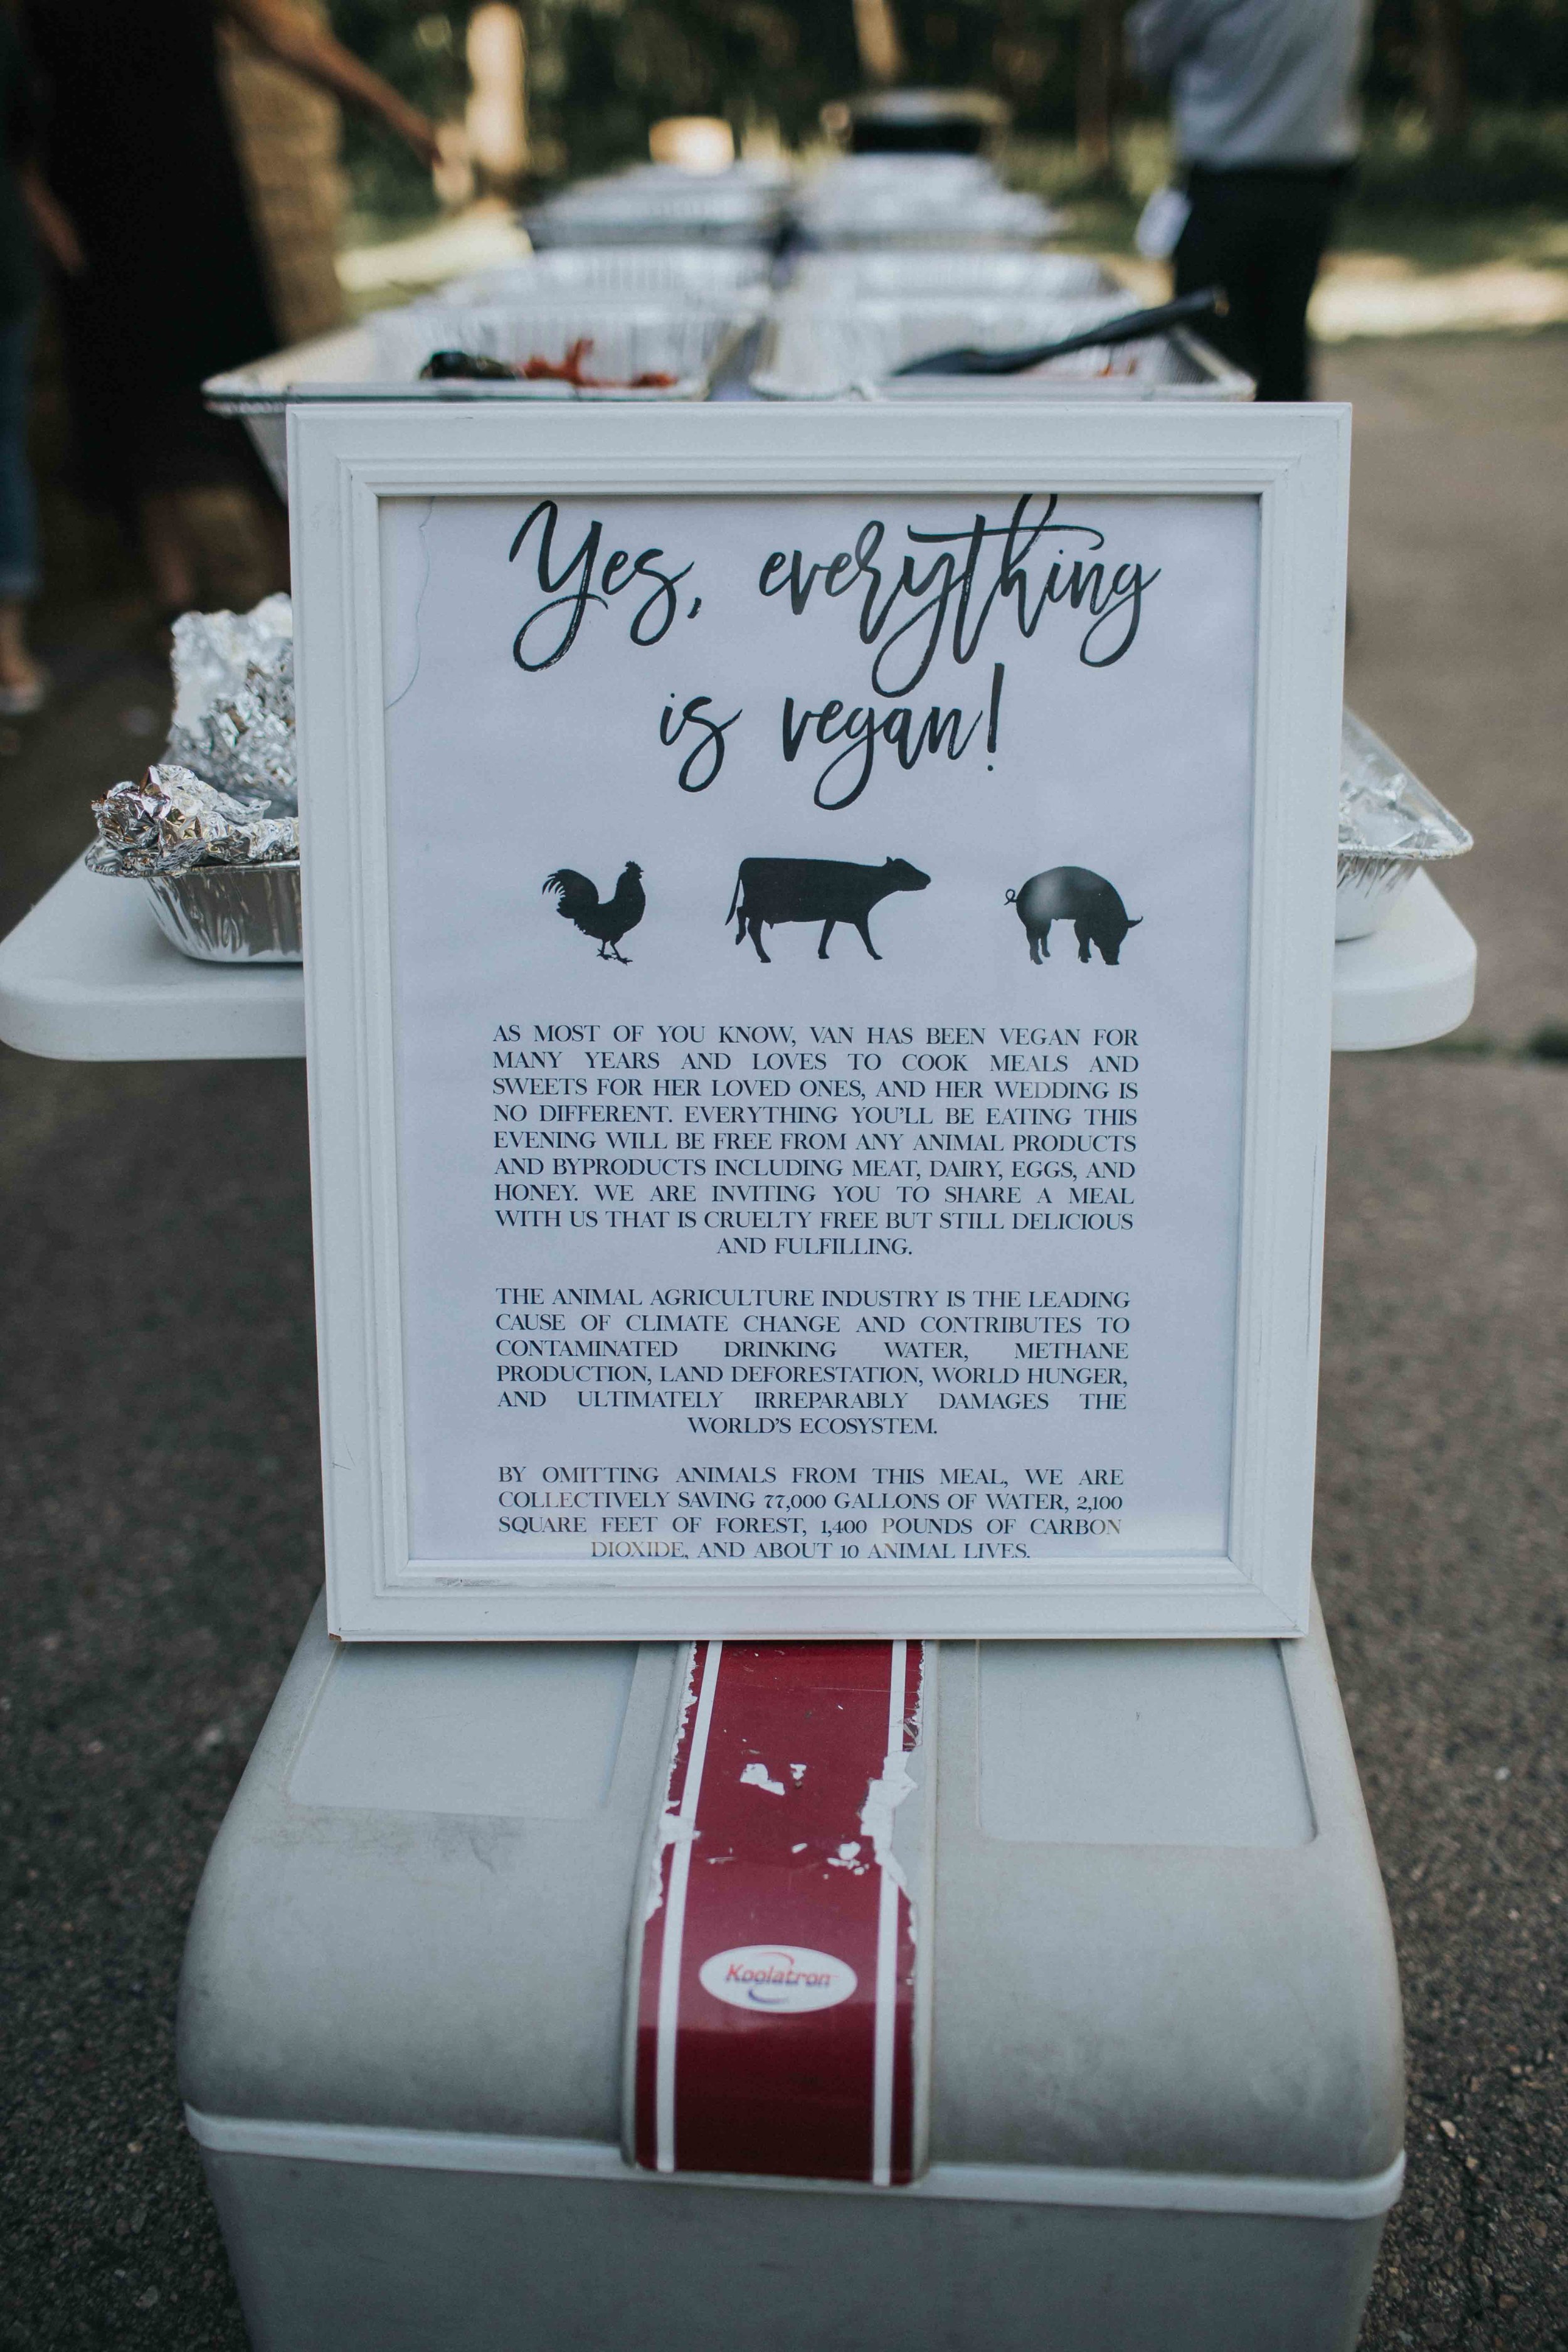 Yes, everything
is vegan!
AS MOST OF YOU KNOW, VAN HAS BEEN VEGAN FOR
MANY YEARS AND LOVES TO COOK MEALS AND
SWEETS FOR HER LOVED ONES, AND HER WEDDING IS
NO DIFFERENT. EVERYTHING YOU'LL BE EATING THIS
EVENING WILL BE FREE FROM ANY ANIMAL PRODUCTS
AND BYPRODUCTS INCLUDING MEAT, DAIRY, EGGS, AND
HONEY. WE ARE INVITING YOU TO SHARE A MEAL
WITH US THAT IS CRUELTY FREE BUT STILL DELICIOUS
AND FULFILLING.
THE ANIMAL AGRICULTURE INDUSTRY IS THE LEADING
CAUSE OF CLIMATE CHANGE AND CONTRIBUTES TO
CONTAMINATED DRINKING WATER, METHANE
PRODUCTION, LAND DEFORESTATION, WORLD HUNGER,
AND ULTIMATELY IRREPARABLY DAMAGES THE
WORLD'S ECOSYSTEM.
BY OMITTING ANIMALS FROM THIS MEAL, WE ARE
COLLECTIVELY SAVING 77,000 GALLONS OF WATER, 2,100
SQUARE FEET OF FOREST, 1,400 POUNDS OF CARBON
DIOXIDE, AND ABOUT 10 ANIMAL LIVES.
Koolatron